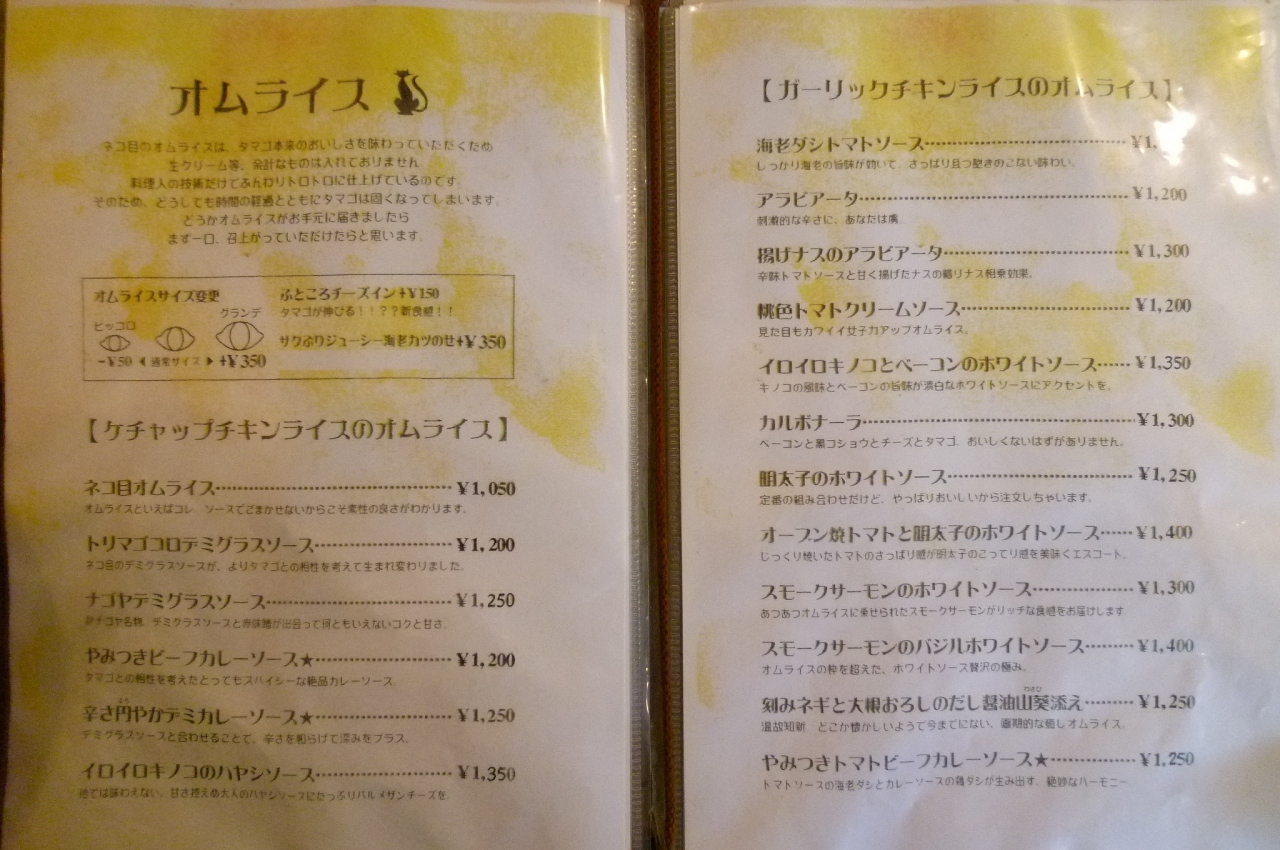 オムライス
ネコ目のオムライスは、タマゴ本来のおいしさを味わっていただくため
生クリーム等、余計なものは入れておりません。
料理人の技術だけでふんわりトロトロに仕上げているのです。
そのため、どうしても時間の経過とともにタマゴは固くなってしまいます。
どうかオムライスがお手元に届きましたら
まず一口、召上がっていただけたらと思います。
オムライスサイズ変更
ピッコロ
グランデ
-¥50 ◀ 通常サイズ ▶ +¥350
ふところチーズイン+¥150
タマゴが伸びる!!??新食感!!
サクぷりジューシー海老カツのせ+¥350
【ケチャップチキンライスのオムライス】
ネコ目オムライス ¥1,050
オムライスといえばコレ ソースでごまかせないからこそ素性の良さがわかります。
トリマゴコロデミグラスソース ¥1,200
ネコ目のデミグラスソースが、よりタマゴとの相性を考えて生まれ変わりました。
ナゴヤデミグラスソース ¥1,250
ナゴヤ名物、デミグラスソースと赤味噌が出会って何ともいえないコクと甘さ。
やみつきビーフカレーソース★ ¥1,200
タマゴとの相性を考えたとってもスパイシーな絶品カレーソース。
辛さ円やかデミカレーソース★ ¥1,250
デミグラスソースと合わせることで、辛さを和らげて深みをプラス。
イロイロキノコのハヤシソース ¥1,350
他では味わえない、甘さ控えめ大人のハヤシソースにたっぷりパルメザンチーズを。
【ガーリックチキンライスのオムライス】
海老ダシトマトソース ¥1,
しっかり海老の旨味が効いて、さっぱり且つ飽きのこない味わい。
アラビアータ ¥1,200
刺激的な辛さに、あなたは虜。
揚げナスのアラビアータ ¥1,300
辛味トマトソースと甘く揚げたナスの織りナス相乗効果。
桃色トマトクリームソース ¥1,200
見た目もカワイイ女子力アップオムライス。
イロイロキノコとベーコンのホワイトソース ¥1,350
キノコの風味とベーコンの旨味が濃白なホワイトソースにアクセントを。
カルボナーラ ¥1,300
ベーコンと黒コショウとチーズとタマゴ、おいしくないはずがありません。
明太子のホワイトソース ¥1,250
定番の組み合わせだけど、やっぱりおいしいから注文しちゃいます。
オーブン焼トマトと明太子のホワイトソース ¥1,400
じっくり焼いたトマトのさっぱり感が明太子のこってり感を美味くエスコート。
スモークサーモンのホワイトソース ¥1,300
あつあつオムライスに乗せられたスモークサーモンがリッチな食感をお届けします
スモークサーモンのバジルホワイトソース ¥1,400
オムライスの枠を超えた、ホワイトソース贅沢の極み。
刻みネギと大根おろしのだし醤油山葵添え ¥1,250
温故知新 どこか懐かしいようで今までにない、画期的な癒しオムライス。
やみつきトマトビーフカレーソース★ ¥1,250
トマトソースの海老ダシとカレーソースの鶏ダシが生み出す、絶妙なハーモニー